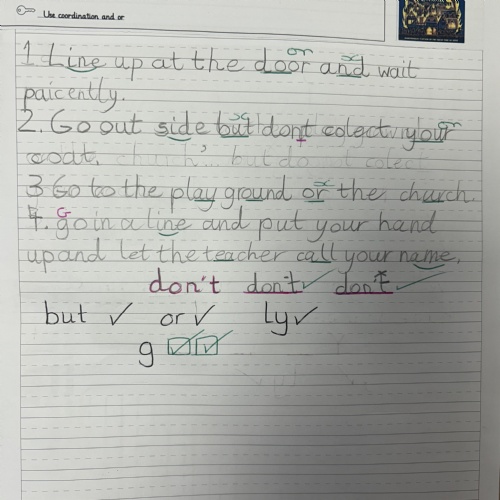 Use coordination and or
1 Line up at the door and wait
paicently.
2. Go out side but don't colect your
coat.
3 Go to the play ground or the church.
4. go in a line and put your hand
up and let the teacher call your name.
don't don't ✓ don't ✓
but ✓ or ✓ ly ✓
g ☑ ☑